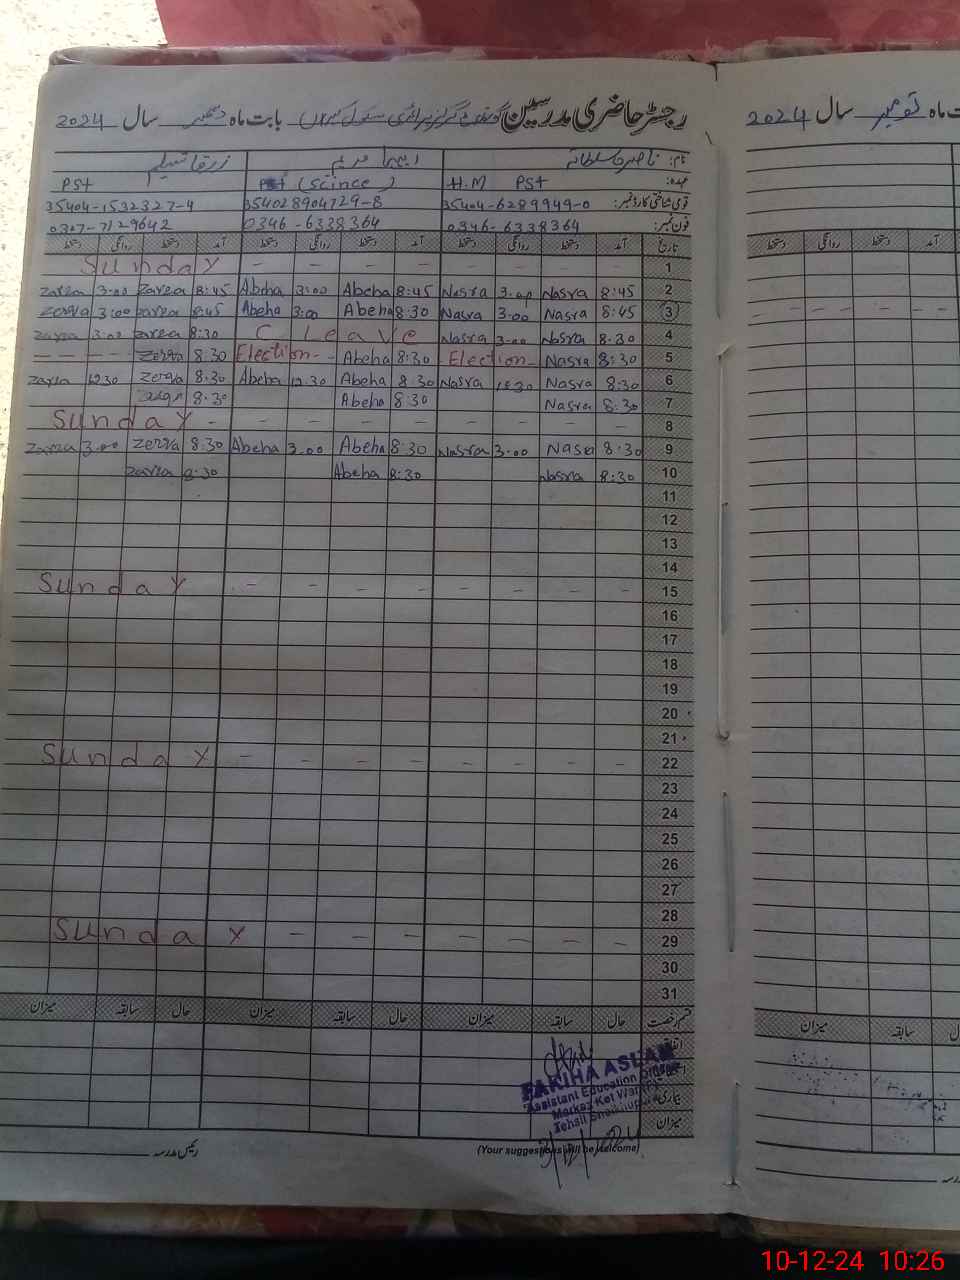 رجسٹر حاضری مدرسین گورنمنٹ گرلز پرائمری سکول بابت ماہ دسمبر سال 2024
نام: ناصرہ سلطانہ
عہدہ: H.M PST (Scince) PST
قومی شناختی کارڈ نمبر: 35404-6289949-0 354028904729-8 35404-1532327-4
فون نمبر: 0346-6338364 0346-6338364 0307-7129642
تاریخ آمد دستخط روانگی دستخط آمد دستخط روانگی دستخط آمد دستخط روانگی دستخط
Sunday - - - - - - - - 1
Zarea 3:00 Zarea 8:45 Abeha 3:00 Abeha 8:45 Nasra 3:00 Nasra 8:45 2
Zerqa 3:00 Zarea 8:45 Abeha 3:00 Abeha 8:30 Nasra 3:00 Nasra 8:45 3
Zarea 3:00 Zarea 8:30 C Leave Nasra 3:00 Nasra 8:30 4
- - - - Zerqa 8:30 Election - - Abeha 8:30 Election - Nasra 8:30 5
Zarea 12:30 Zerqa 8:30 Abeha 12:30 Abeha 8:30 Nasra 12:30 Nasra 8:30 6
8:30 Abeha 8:30 Nasra 8:30 7
Sunday - - - - - - - - - 8
Zarea 3:00 Zerqa 8:30 Abeha 3:00 Abeha 8:30 Nasra 3:00 Nasra 8:30 9
Zarea 8:30 Abeha 8:30 Nasra 8:30 10
11
12
13
14
Sunday - - - - - - - - 15
16
17
18
19
20
21
Sunday - - - - - - - - 22
23
24
25
26
27
28
Sunday - - - - - - - 29
30
31
قسم رخصت حال سابقہ میزان حال سابقہ میزان حال سابقہ میزان
بیماری
میزان
FARIHA ASLAM
Assistant Education Officer
Markaz Kot
Tehsil
(Your suggestions will be welcome)
رئیس مدرسہ
ماہ نومبر سال 2024
آمد دستخط روانگی دستخط
سابقہ میزان
10-12-24 10:26